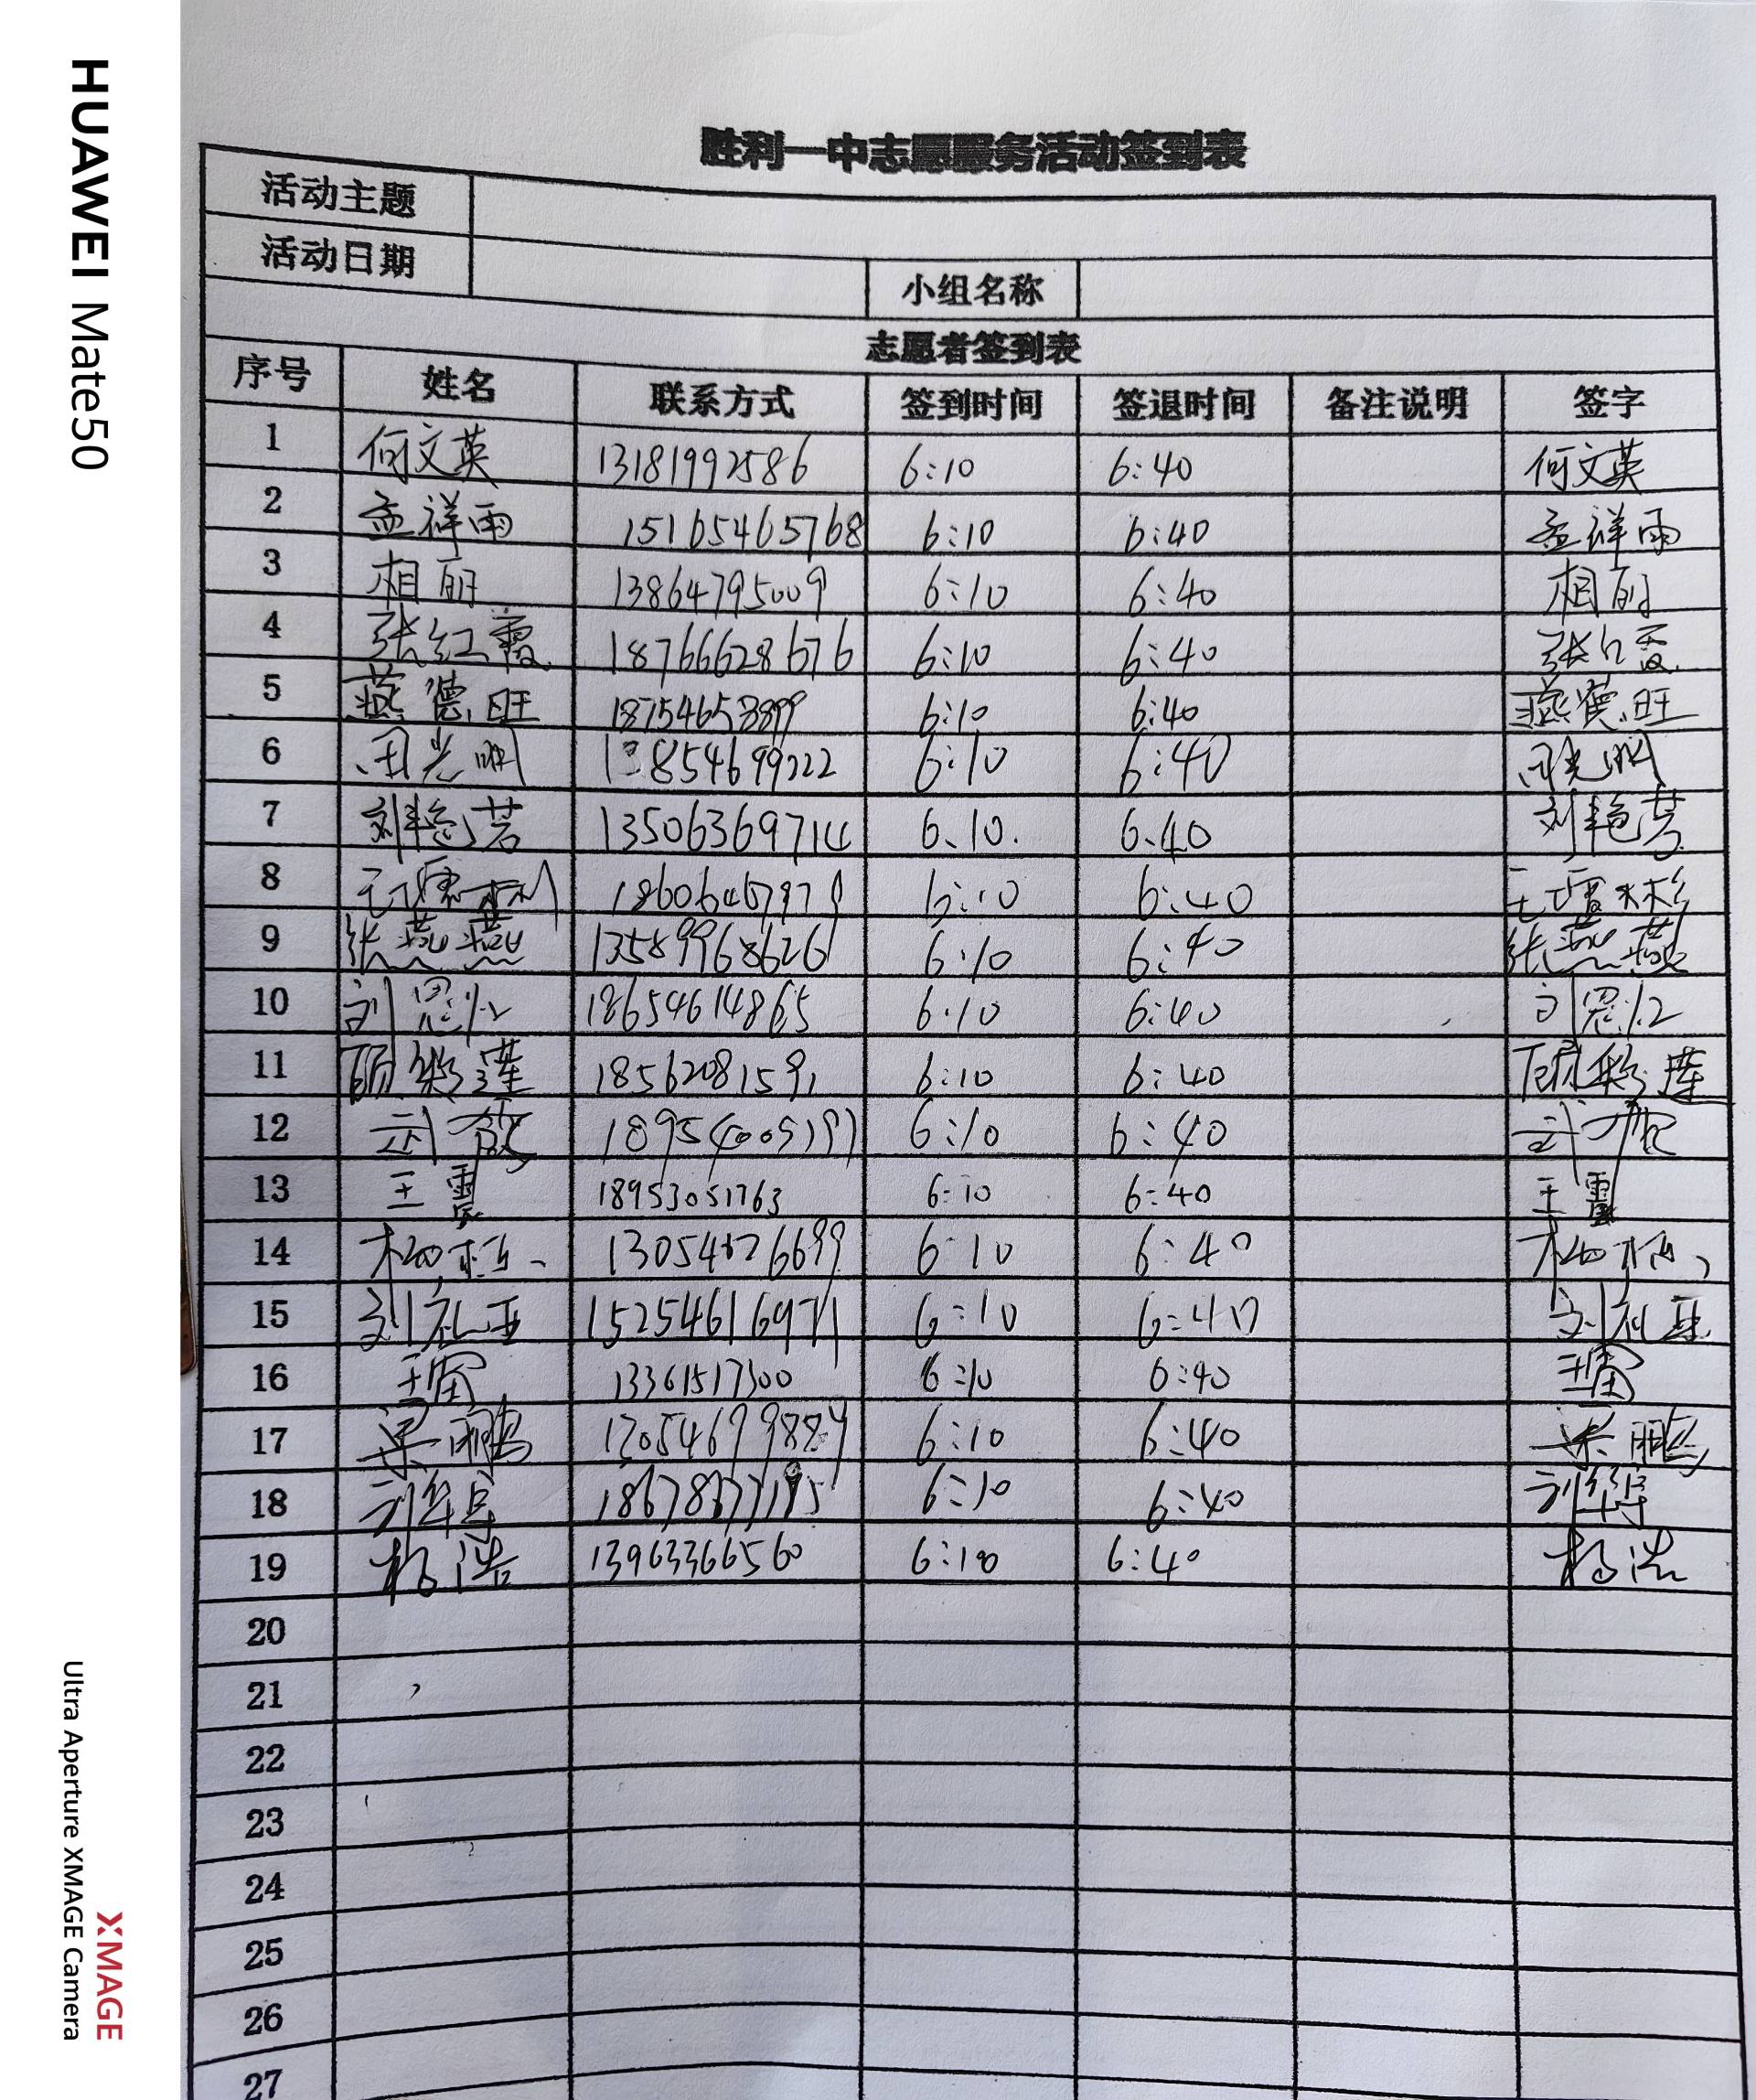 HUAWEI Mate50
胜利一中志愿服务活动签到表
活动主题
活动日期 小组名称
志愿者签到表
序号 姓名 联系方式 签到时间 签退时间 备注说明 签字
1 何文英 13181992586 6:10 6:40 何文英
2 孟祥雨 15165465768 6:10 6:40 孟祥雨
3 相丽 13864795009 6:10 6:40 相丽
4 张红霞 18766628676 6:10 6:40 张红霞
5 燕德旺 18754653899 6:10 6:40 燕德旺
6 田光明 13854699222 6:10 6:40 田光明
7 刘艳芳 13506369714 6.10. 6.40 刘艳芳
8 6:10 6:40
9 张燕燕 13589968626 6:10 6:40 张燕燕
10 18654614865 6:10 6:40
11 顾彩莲 18562081591 6:10 6:40 顾彩莲
12 6:10 6:40
13 18953051763 6:10 6:40
14 6:10 6:40
15 刘礼亚 15254616971 6:10 6:40 刘礼亚
16 王雷 13361517300 6:10 6:40 王雷
17 梁鹏 6:10 6:40 梁鹏
18 6:10 6:40
19 杨浩 13963366560 6:10 6:40 杨浩
20
21
22
23
24
25
26
27
XMAGE
Ultra Aperture XMAGE Camera